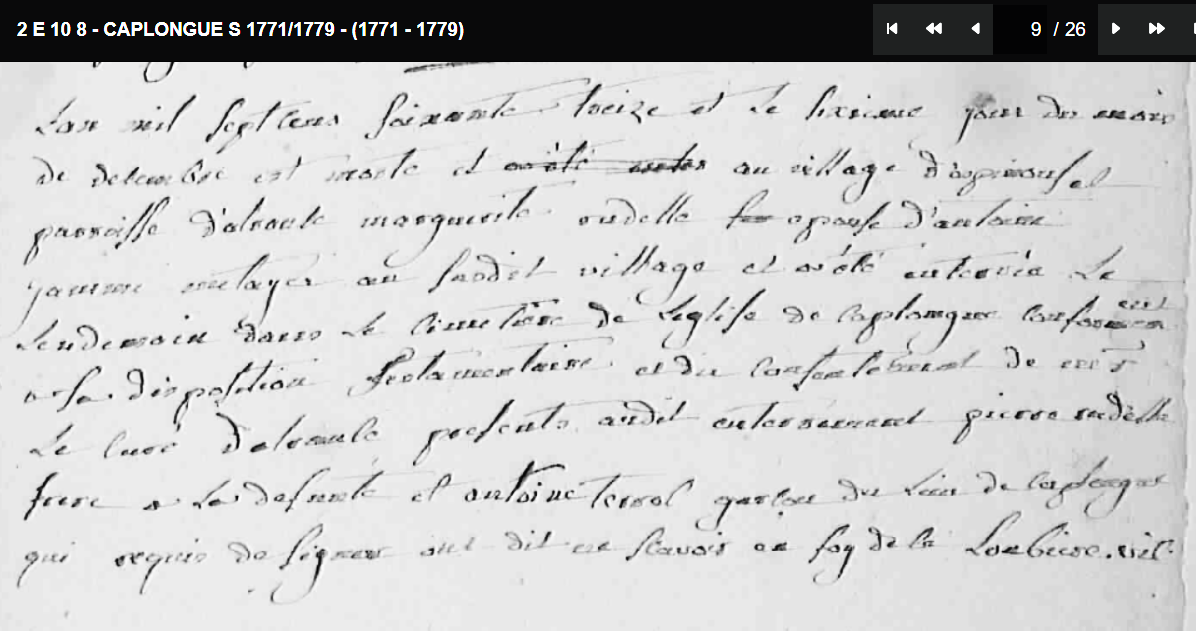 2 E 10 8 - CAPLONGUE S 1771/1779 - (1771 - 1779)
9 / 26
Lan mil sept cens soixante treize et le sixieme jour du mois
de decembre est morte et a été au village d'espinousel
parroisse d'alraule marguerite rudelle epouse d'antoine
metayer au susdit village et a été enterrée le
lendemain dans le cimetière de leglise de caplongue conformement
a sa disposition testamentaire et du consentement de mr
le curé d'alraule presents audit enterrement pierre rudelle
frere a la defunte et antoine terral garçon du lieu de caplongue
qui requis de signer ont dit ne scavoir en foy de ce Loubiere. vic.